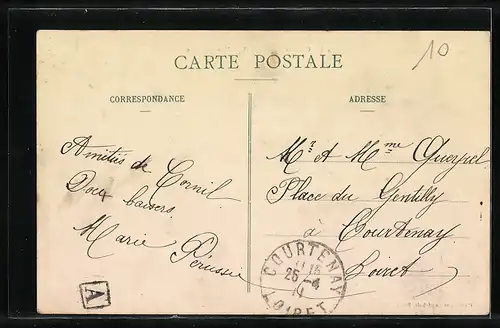 10
CARTE POSTALE
CORRESPONDANCE
ADRESSE
Amitiés de Cornil
Doux baisers
Marie
Mr et Mme
Place du Gentilly
à Courtenay
Loiret
COURTENAY
25-4
LOIRET
A